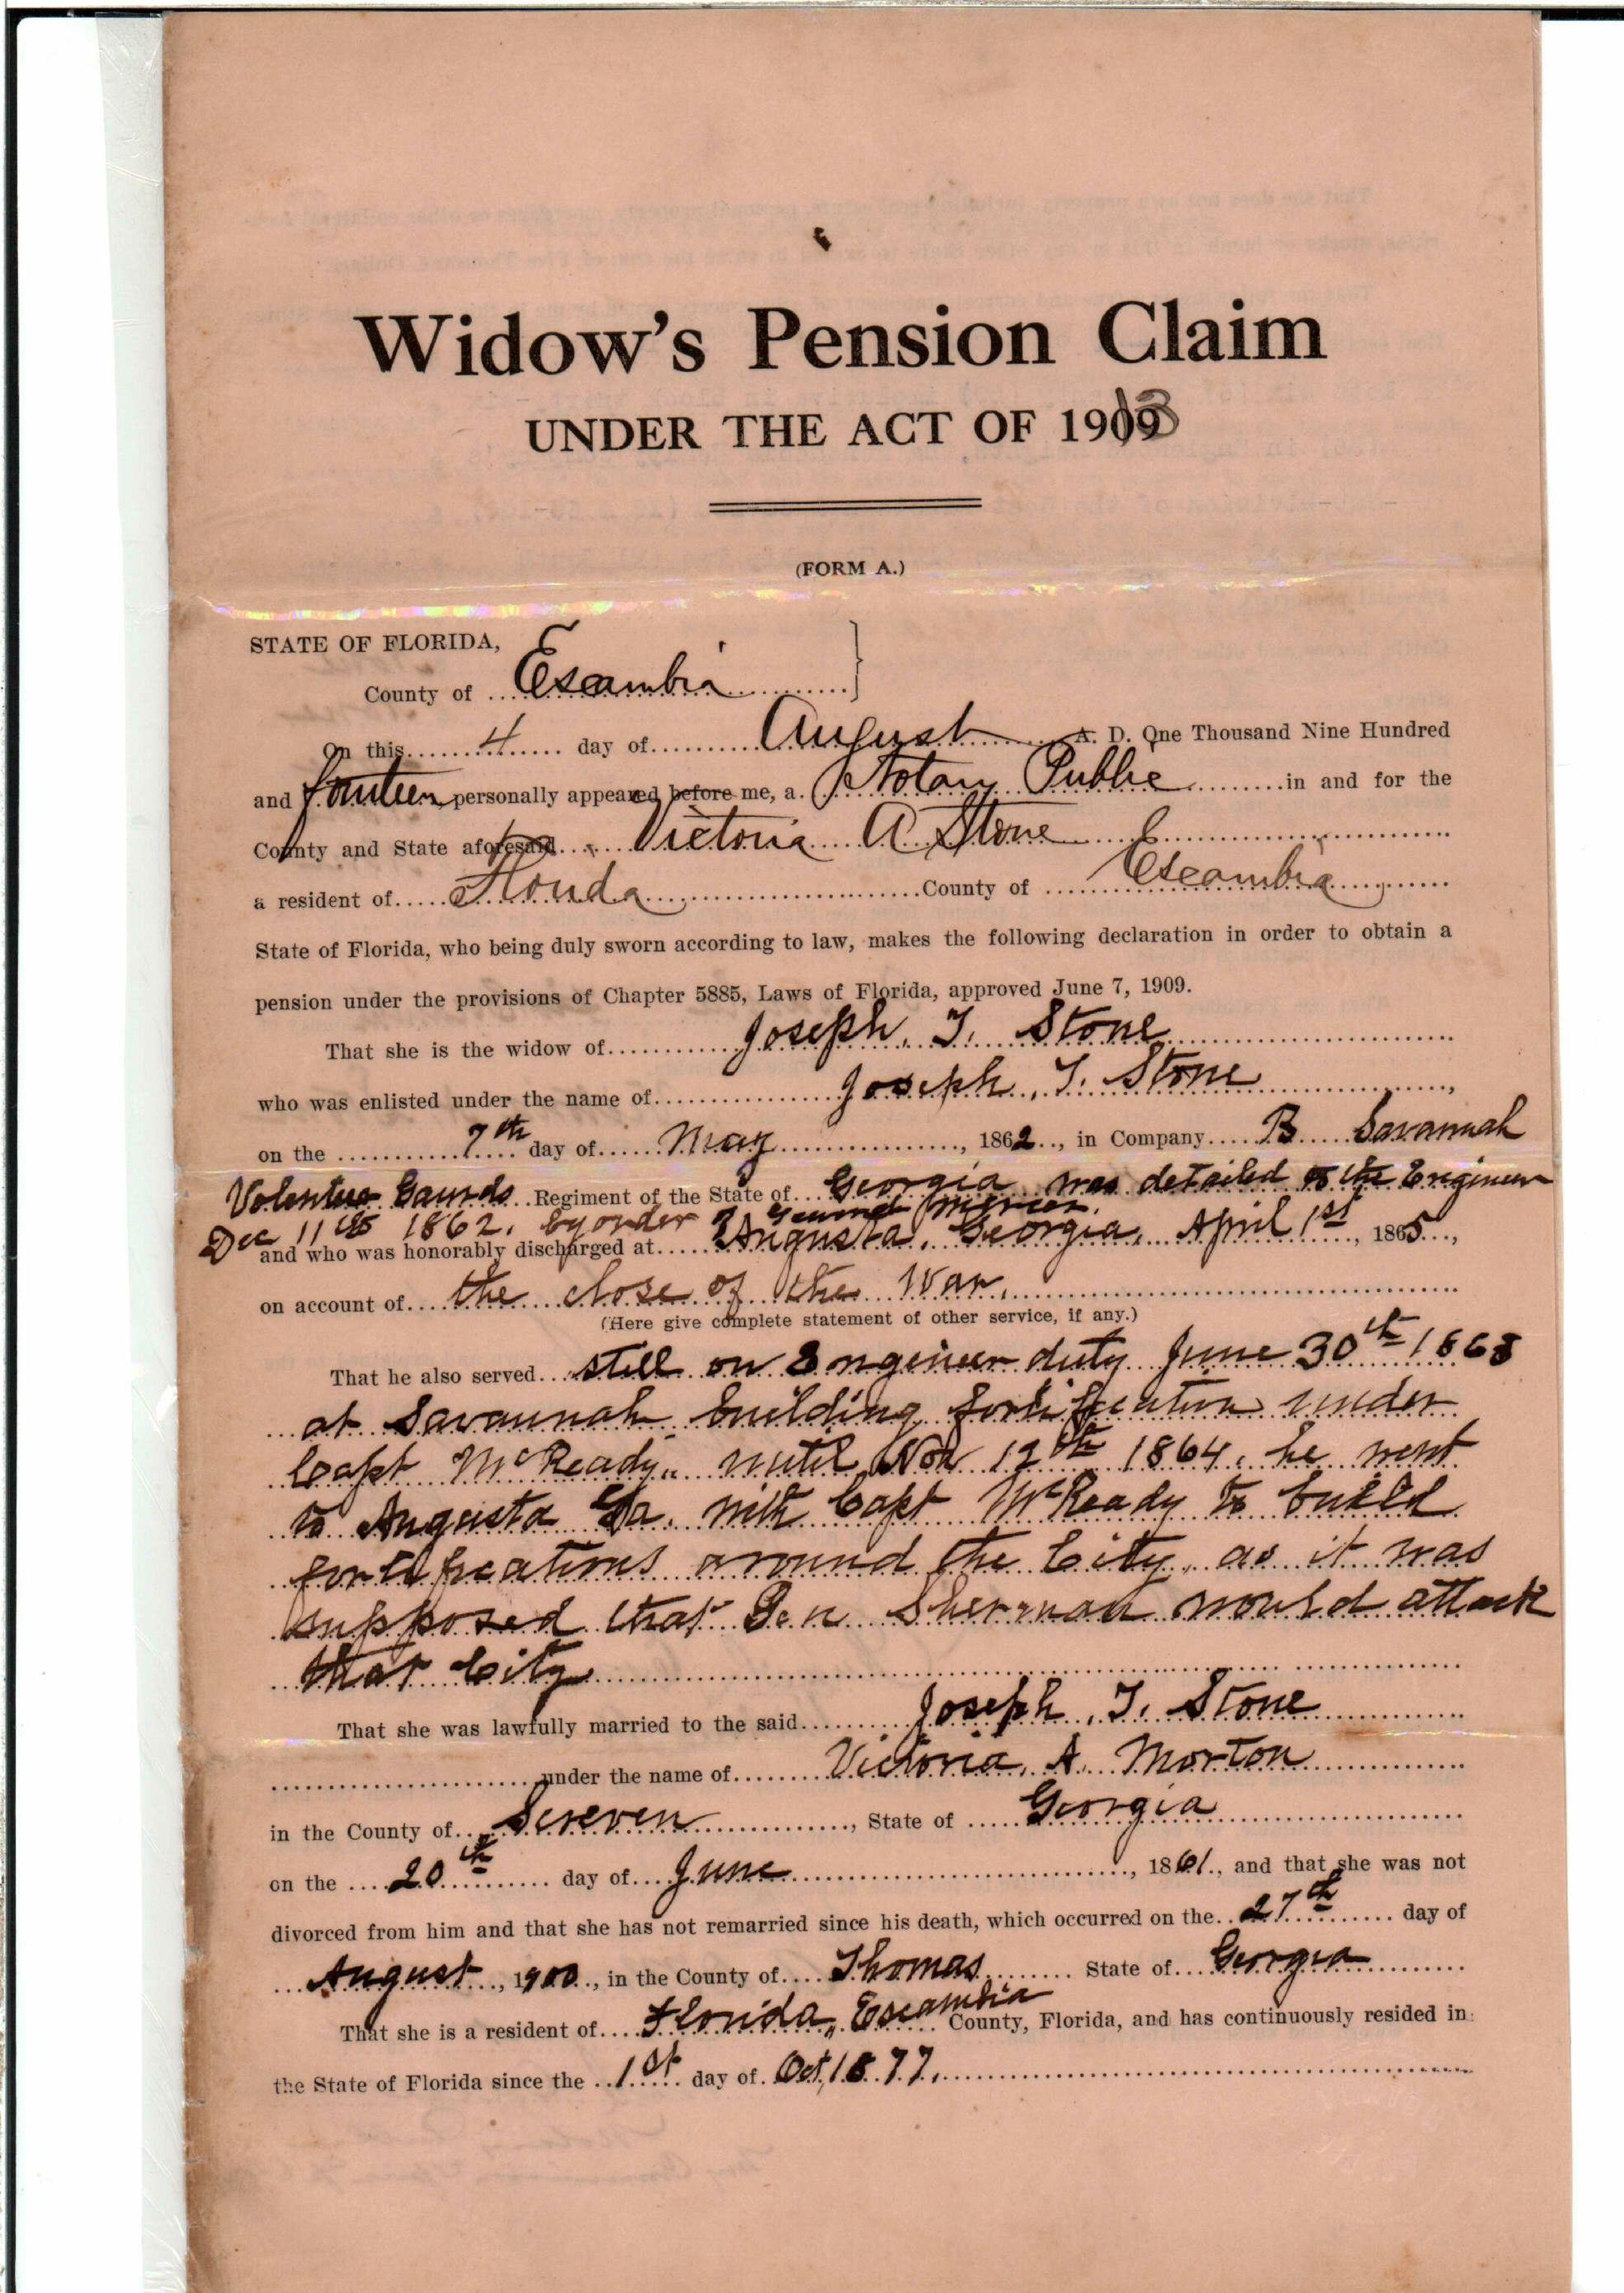 Widow's Pension Claim
UNDER THE ACT OF 1913
(FORM A.)
STATE OF FLORIDA,
County of Escambia
On this 4 day of August A. D. One Thousand Nine Hundred
and fourteen personally appeared before me, a Notary Public in and for the
County and State aforesaid Victoria A Stone
a resident of Florida County of Escambia
State of Florida, who being duly sworn according to law, makes the following declaration in order to obtain a
pension under the provisions of Chapter 5885, Laws of Florida, approved June 7, 1909.
That she is the widow of Joseph. T. Stone
who was enlisted under the name of Joseph. T. Stone,
on the 7th day of May, 1862, in Company B Savannah
Volenteer Gaurds Regiment of the State of Georgia was detailed to the Engineer
Dec 11th 1862. by order of General Mercer.
and who was honorably discharged at Augusta, Georgia, April 1st, 1865,
on account of the close of the War.
(Here give complete statement of other service, if any.)
That he also served still on Engineer duty June 30th 1863
at Savannah building fortification under
Capt McReady. until Nov 12th 1864. he went
to Augusta Ga. with Capt McReady to build
fortifications around the City, as it was
supposed that Gen Sherman would attack
that City
That she was lawfully married to the said Joseph. T. Stone
under the name of Victoria. A. Morton
in the County of Screven, State of Georgia
on the 20th day of June, 1861, and that she was not
divorced from him and that she has not remarried since his death, which occurred on the 27th day of
August, 1900, in the County of Thomas State of Georgia
That she is a resident of Florida, Escambia County, Florida, and has continuously resided in
the State of Florida since the 1st day of Oct, 1877.